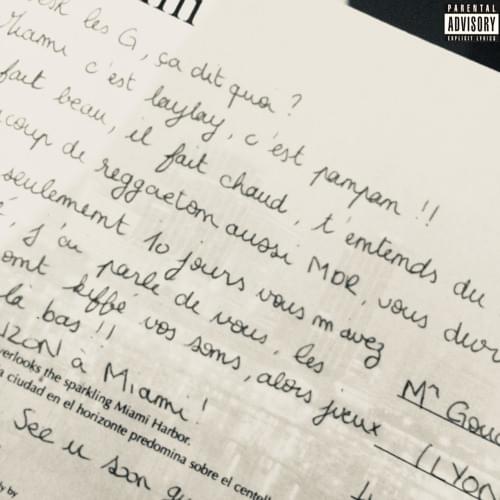 PARENTAL
ADVISORY
EXPLICIT LYRICS
les G, ça dit quoi ?
Miami c'est laylay, c'est pampam !!
fait beau, il fait chaud, t'entends du
de reggaeton aussi MDR, vous
seulement 10 jours vous m'avez
j'ai parlé de vous, les
ont kiffé vos sons, alors jveux
là bas !!
à Miami !
overlooks the sparkling Miami Harbor.
a ciudad en el horizonte predomina sobre el
See u soon
Mr
LYON